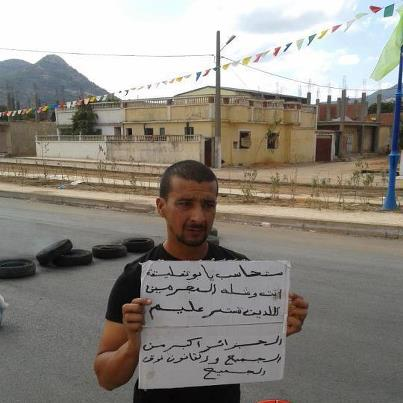 ستحاسب يا بوتفليقة
انت وشلة المجرمين
الذين تستر عليهم
الجزائر أكبر من
الجميع والقانون فوق
الجميع